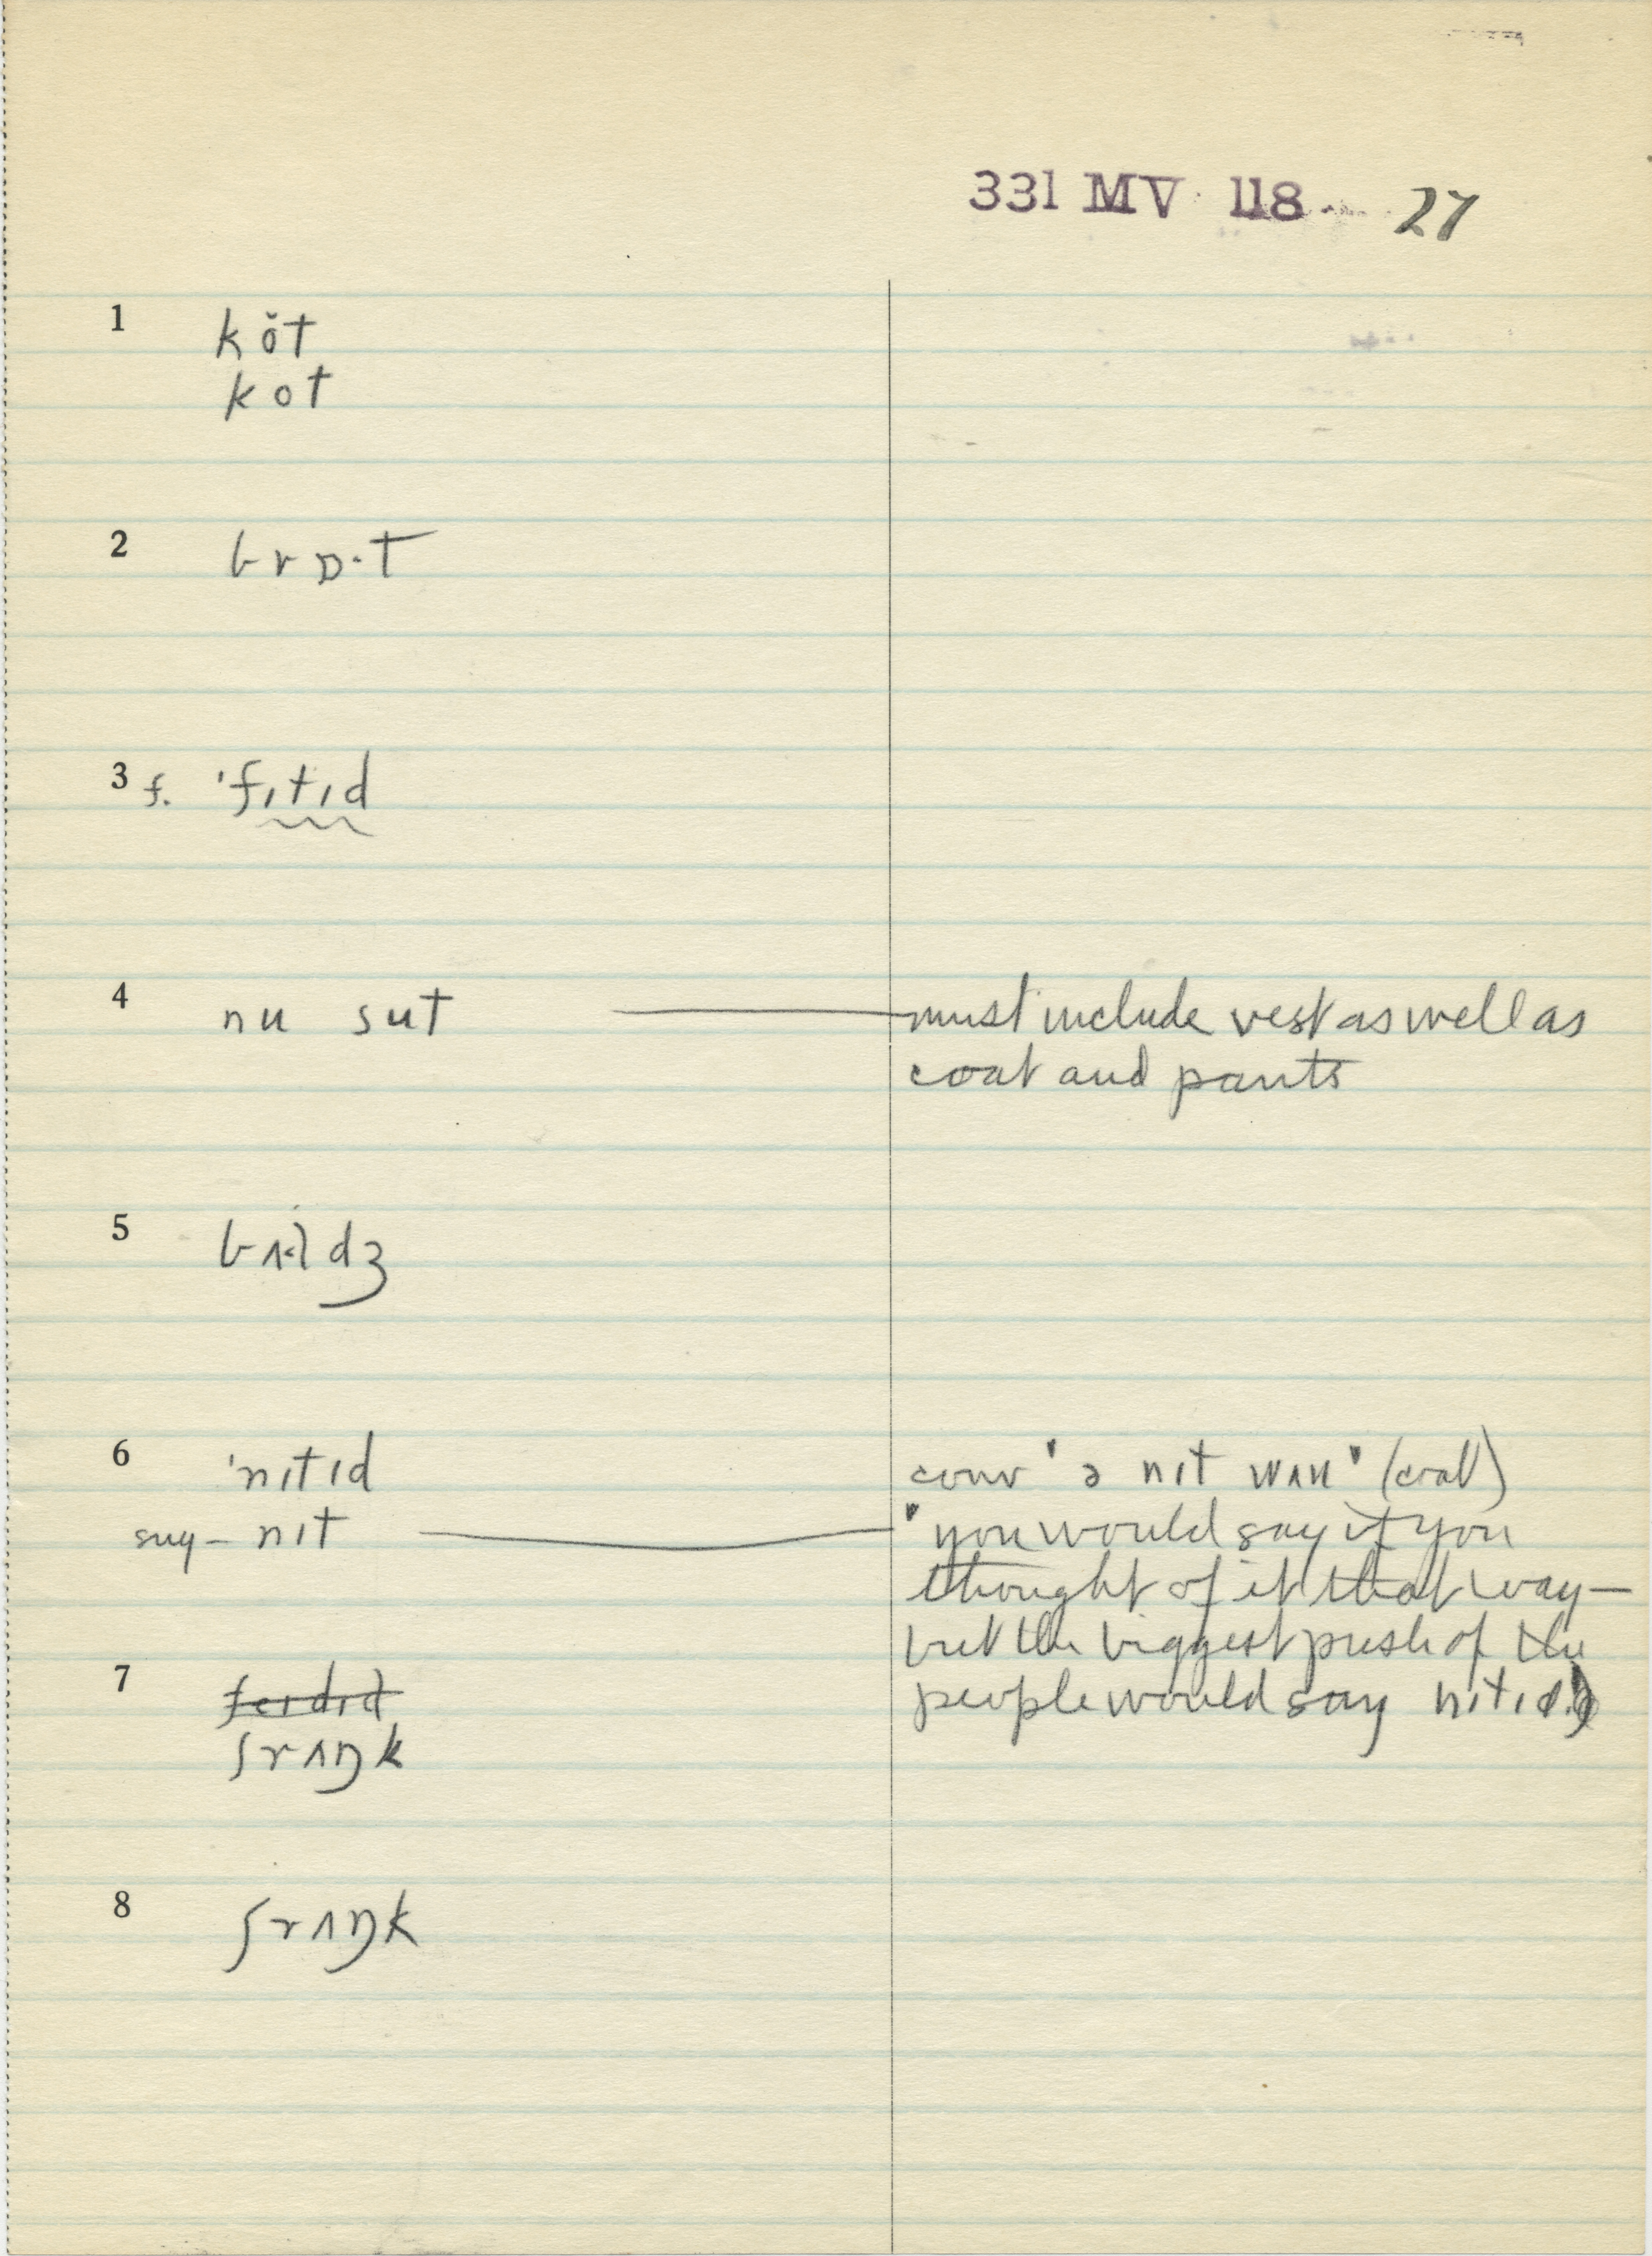 331 MV 118 27
1 kŏt
kot
2 brɒ·t
3 f. 'fɪtɪd
4 nu sut — must include vest as well as
coat and pants
5 dʒ
6 'nɪtɪd conv "ə nɪt wʌn" (coat)
sug– nɪt — "you would say if you
thought of it that way—
but the biggest push of the
7 people would say nɪtɪd
ʃrʌŋk
8 ʃrʌŋk